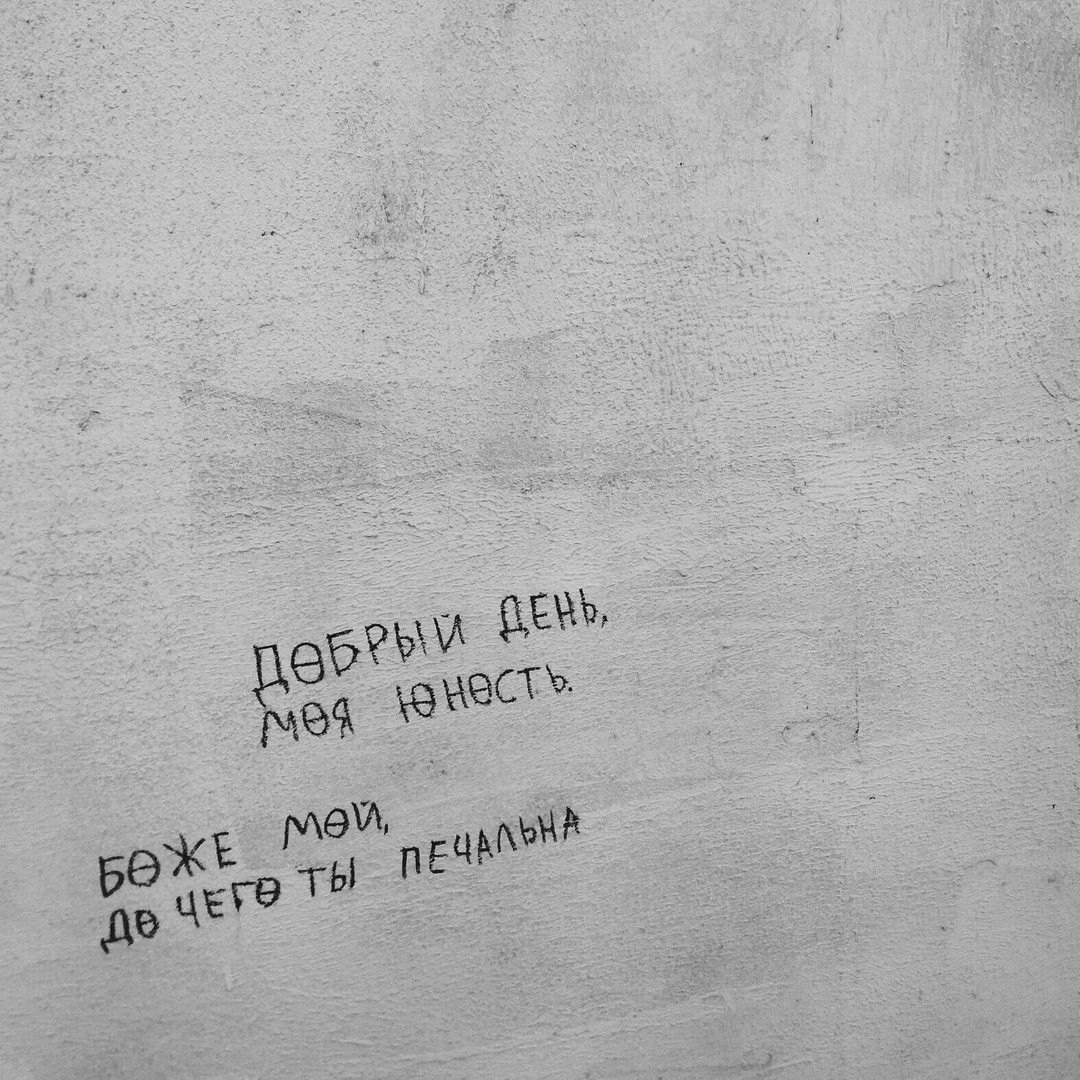 ДОБРЫЙ ДЕНЬ,
МОЯ ЮНОСТЬ.
БОЖЕ МОЙ,
ДО ЧЕГО ТЫ ПЕЧАЛЬНА